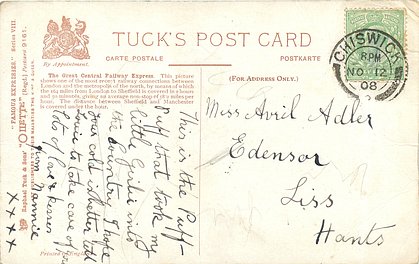 TUCK'S POST CARD
By Appointment.
CARTE POSTALE
POSTKARTE
(FOR ADDRESS ONLY.)
"FAMOUS EXPRESSES." SERIES VIII.
"OILETTE" (Regd.) Postcard 9161.
RAPHAEL TUCK & SONS'
The Great Central Railway Express. This picture
shows one of the most recent railway connections between
London and the metropolis of the north, by means of which
the 165 miles from London to Sheffield is covered in 2 hours
and 50 minutes, giving an average non-stop of 57.2 miles per
hour. The distance between Sheffield and Manchester
is covered under the hour.
CHISWICK
8PM
NO 12
08
This is the Puff
Puff that took my
little Girlie into
the Country. I hope
your cold is better.
to take care of
Lots of love & kisses
from Nannie
x x x x
Miss Avril Adler
Edensor
Liss
Hants